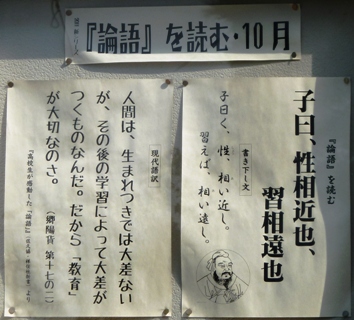 『論語』を読む・10月
『論語』を読む
子曰、性相近也、
習相遠也
書き下し文
子曰く、性、相い近し。
習えば、相い遠し。
現代語訳
人間は、生まれつきでは大差ない
が、その後の学習によって大差が
つくものなんだ。だから「教育」
が大切なのさ。
（郷陽貨 第十七の二）
『高校生が感動した「論語」』
より